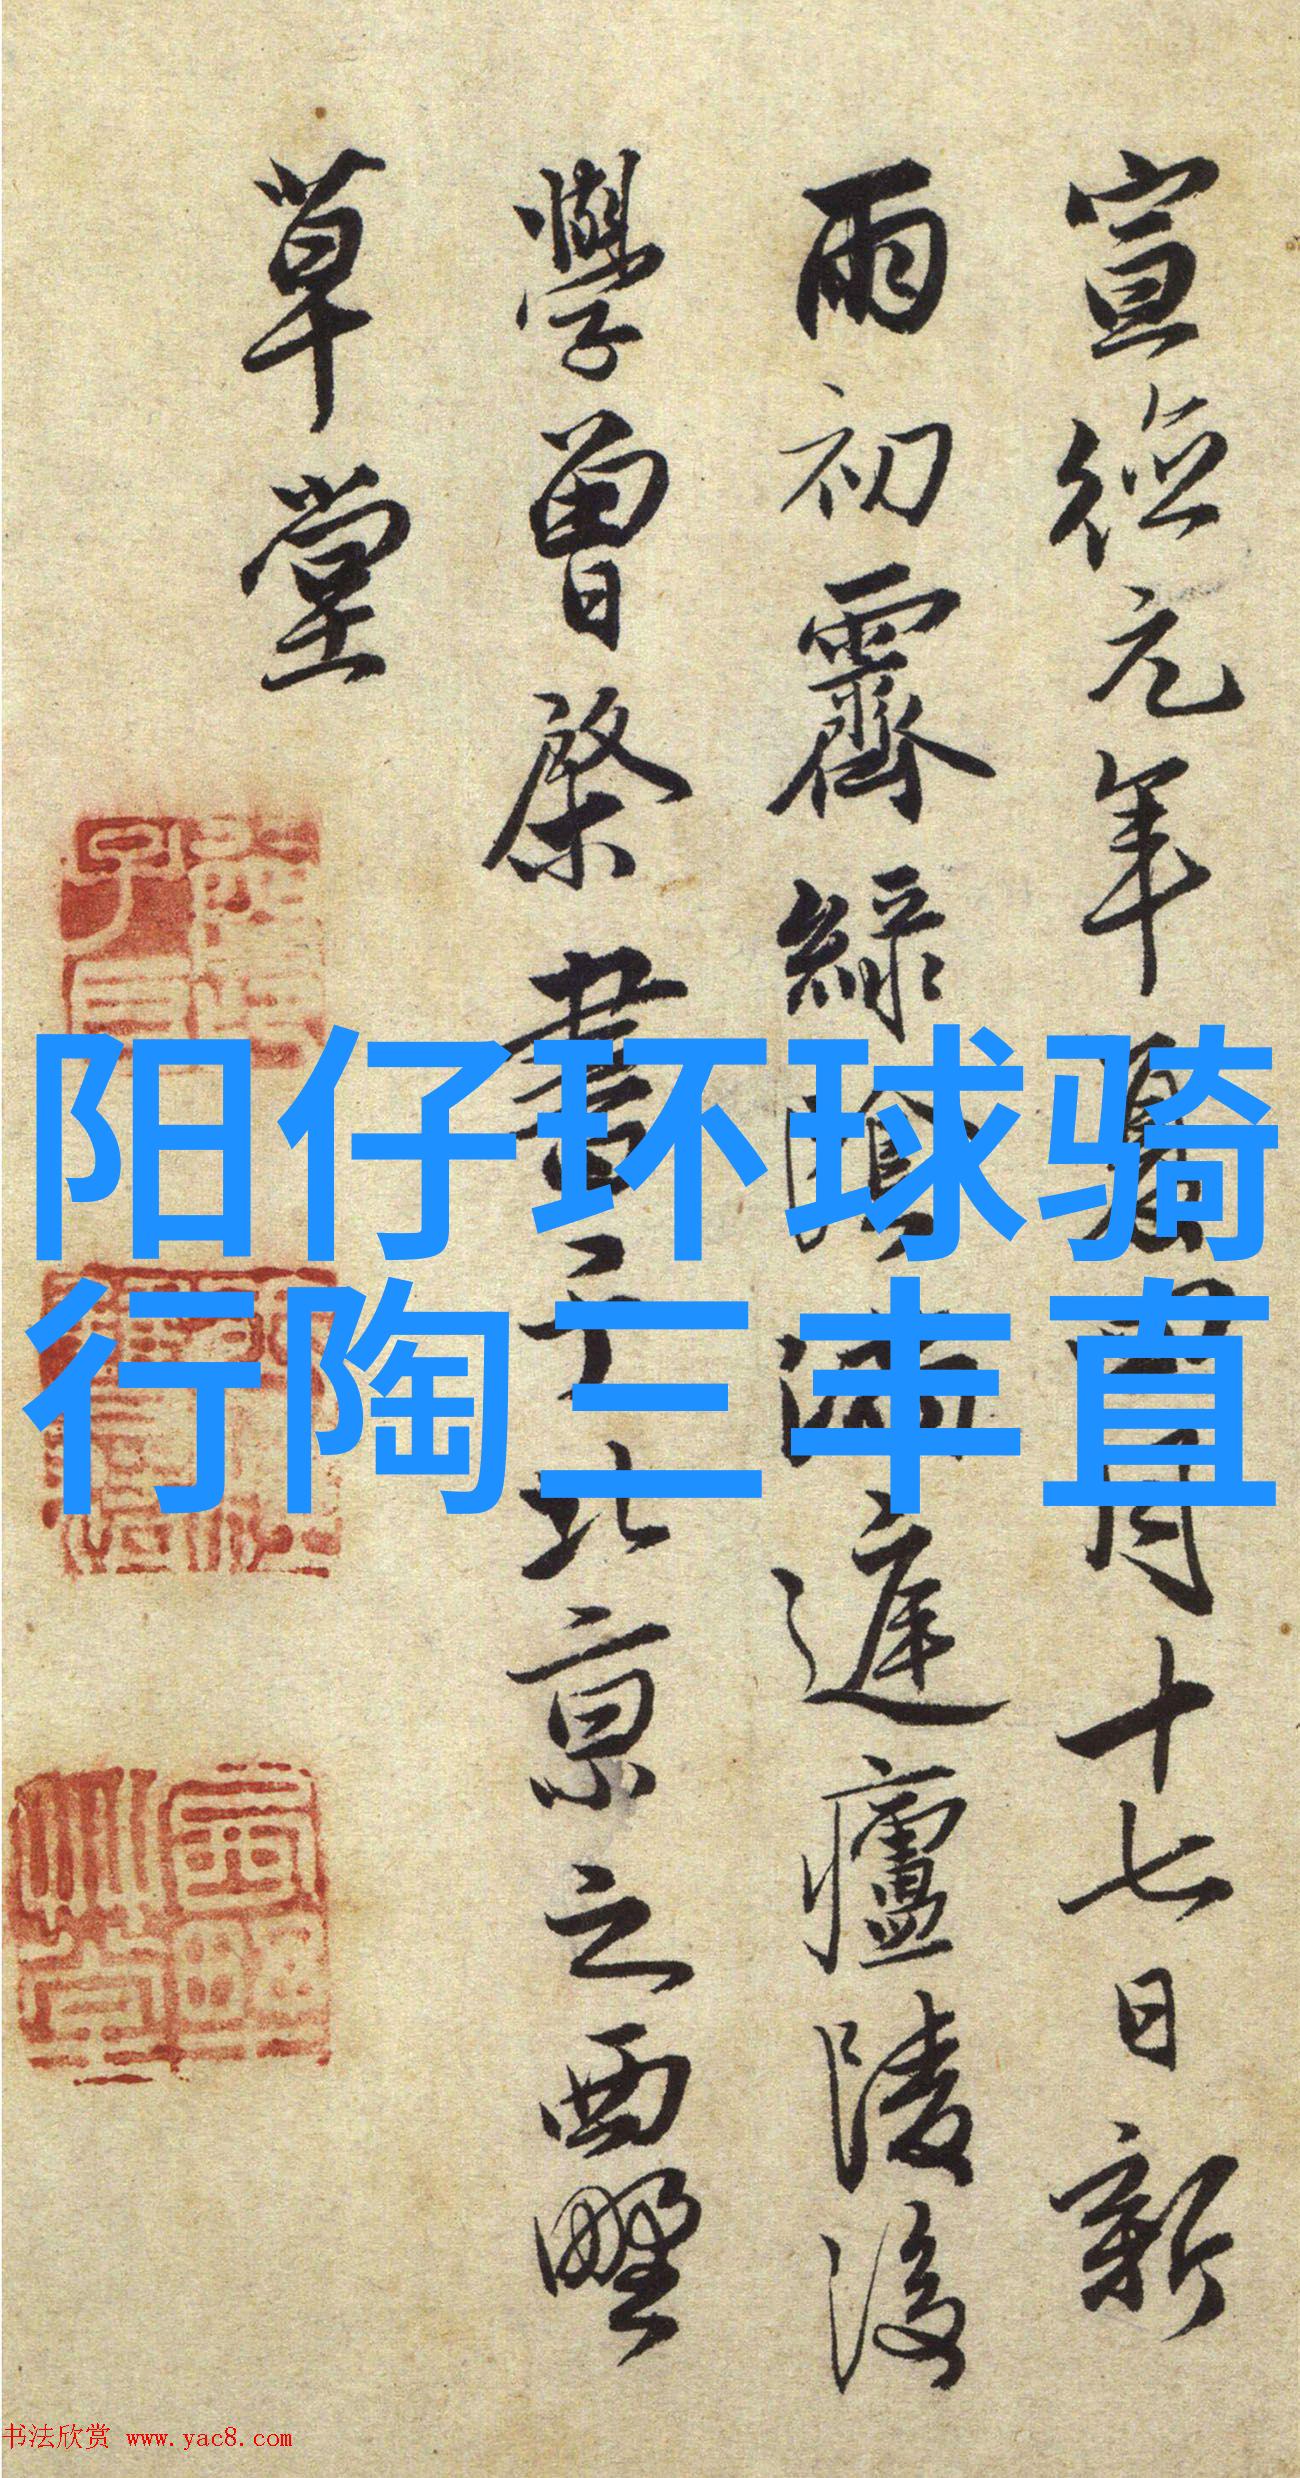 宣德元年夏四月十七日新
雨初霽綠陰滿庭廬陵後
學曾棨書于北京之西墅
草堂
阳仔环球骑
行陶三丰直
书法欣赏 www.yac8.com